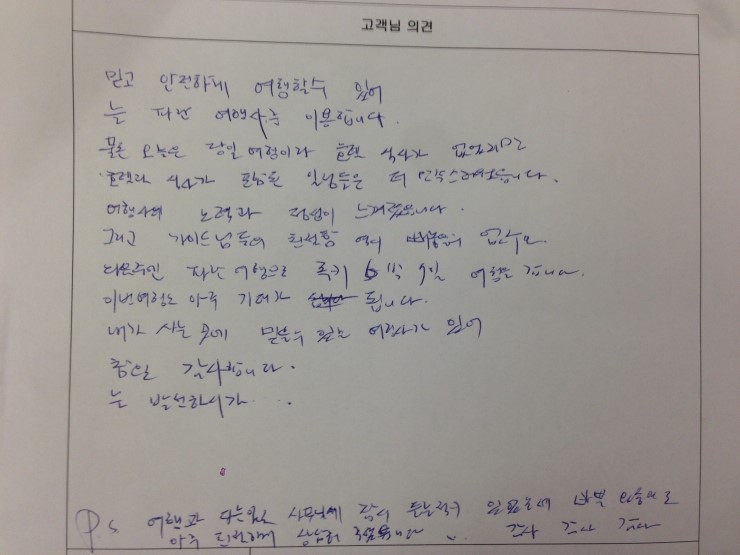 고객님 의견
믿고 안전하게 여행할수 있어
는 파란 여행사를 이용합니다.
물론 오늘은 당일여행이라 호텔 식사가 없었지만
호텔과 식사가 포함된 일정들은 더 만족스러웠습니다.
여행사의 노력과 정성이 느껴졌습니다.
그리고 가이드님들의 친절함 역시
다음주엔 파란여행으로 록키 6박 7일 여행을 갑니다.
이번여행도 아주 기대가 됩니다.
내가 사는 곳에 믿을수 있는 여행사가 있어
감사합니다.
는 발전하시기.....
P.S 여행과 사무실에 잠시 들렀
아주 친절하게 상담해 주셨습니다 ... 감사 감사 감사